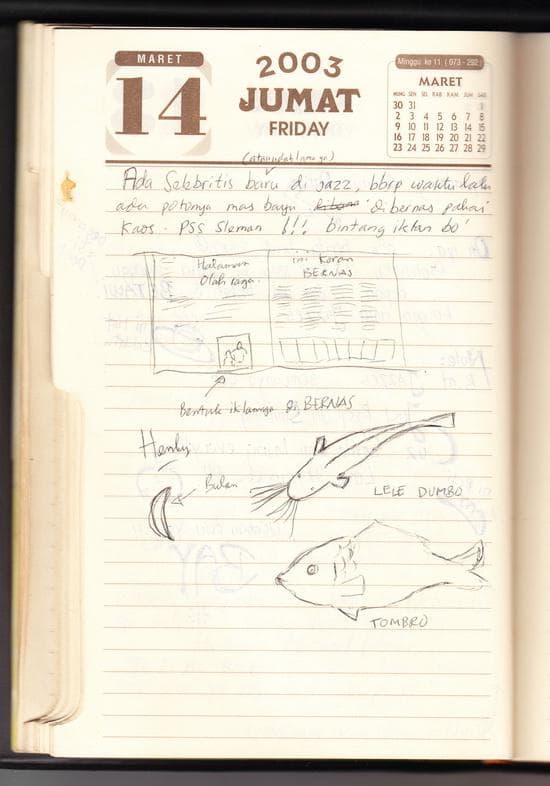 MARET
14
2003
JUMAT
FRIDAY
Minggu ke 11 ( 073 - 292 )
MARET
MING SEN SEL RAB KAM JUM SAB
30 31 1
2 3 4 5 6 7 8
9 10 11 12 13 14 15
16 17 18 19 20 21 22
23 24 25 26 27 28 29
Ada Selebritis baru di jazz, bbrp waktu lalu
ada potonya mas bayu di bernas pakai
Kaos. PSS Sleman !!! bintang iklan bo'
Halaman
Olah raga.
ini Koran
BERNAS
Bentuk iklannya di BERNAS
Hendy
Bulan
LELE DUMBO
TOMBRO